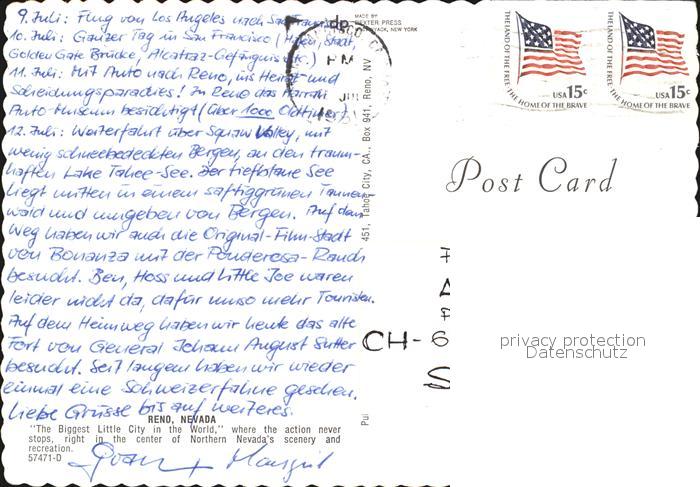 9. Juli: Flug von Los Angeles nach San
10. Juli: Ganzer Tag in San Francisco (Hafen, Stadt,
Golden Gate Brücke, Alcatraz-Gefängnis etc.)
11. Juli: Mit Auto nach Reno, ins Heirat- und
Scheidungsparadies! In Reno das Harrah
Auto-Museum besichtigt (über 1000 Oldtimer).
12. Juli: Weiterfahrt über Squaw Valley, mit
wenig schneebedeckten Bergen, an den traum-
haften Lake Tahoe-See. Der tiefblaue See
liegt mitten in einem saftiggrünen Tannen-
wald und umgeben von Bergen. Auf dem
Weg haben wir auch die Original-Film-Stadt
von Bonanza mit der Ponderosa-Ranch
besucht. Ben, Hoss und Little Joe waren
leider nicht da, dafür umso mehr Touristen.
Auf dem Heimweg haben wir heute das alte
Fort von General Johann August Sutter
besucht. Seit langem haben wir wieder
einmal eine Schweizerfahne gesehen.
Liebe Grüsse bis auf weiteres.
RENO, NEVADA
"The Biggest Little City in the World," where the action never
stops, right in the center of Northern Nevada's scenery and
recreation.
57471-D
dp
MADE BY
DEXTER PRESS
NEW YORK
PM
JUL
451, Tahoe City, CA., Box 941, Reno, NV
THE LAND OF THE FREE THE HOME OF THE BRAVE
USA 15c
THE LAND OF THE FREE THE HOME OF THE BRAVE
USA 15c
Post Card
CH-6
S
privacy protection
Datenschutz